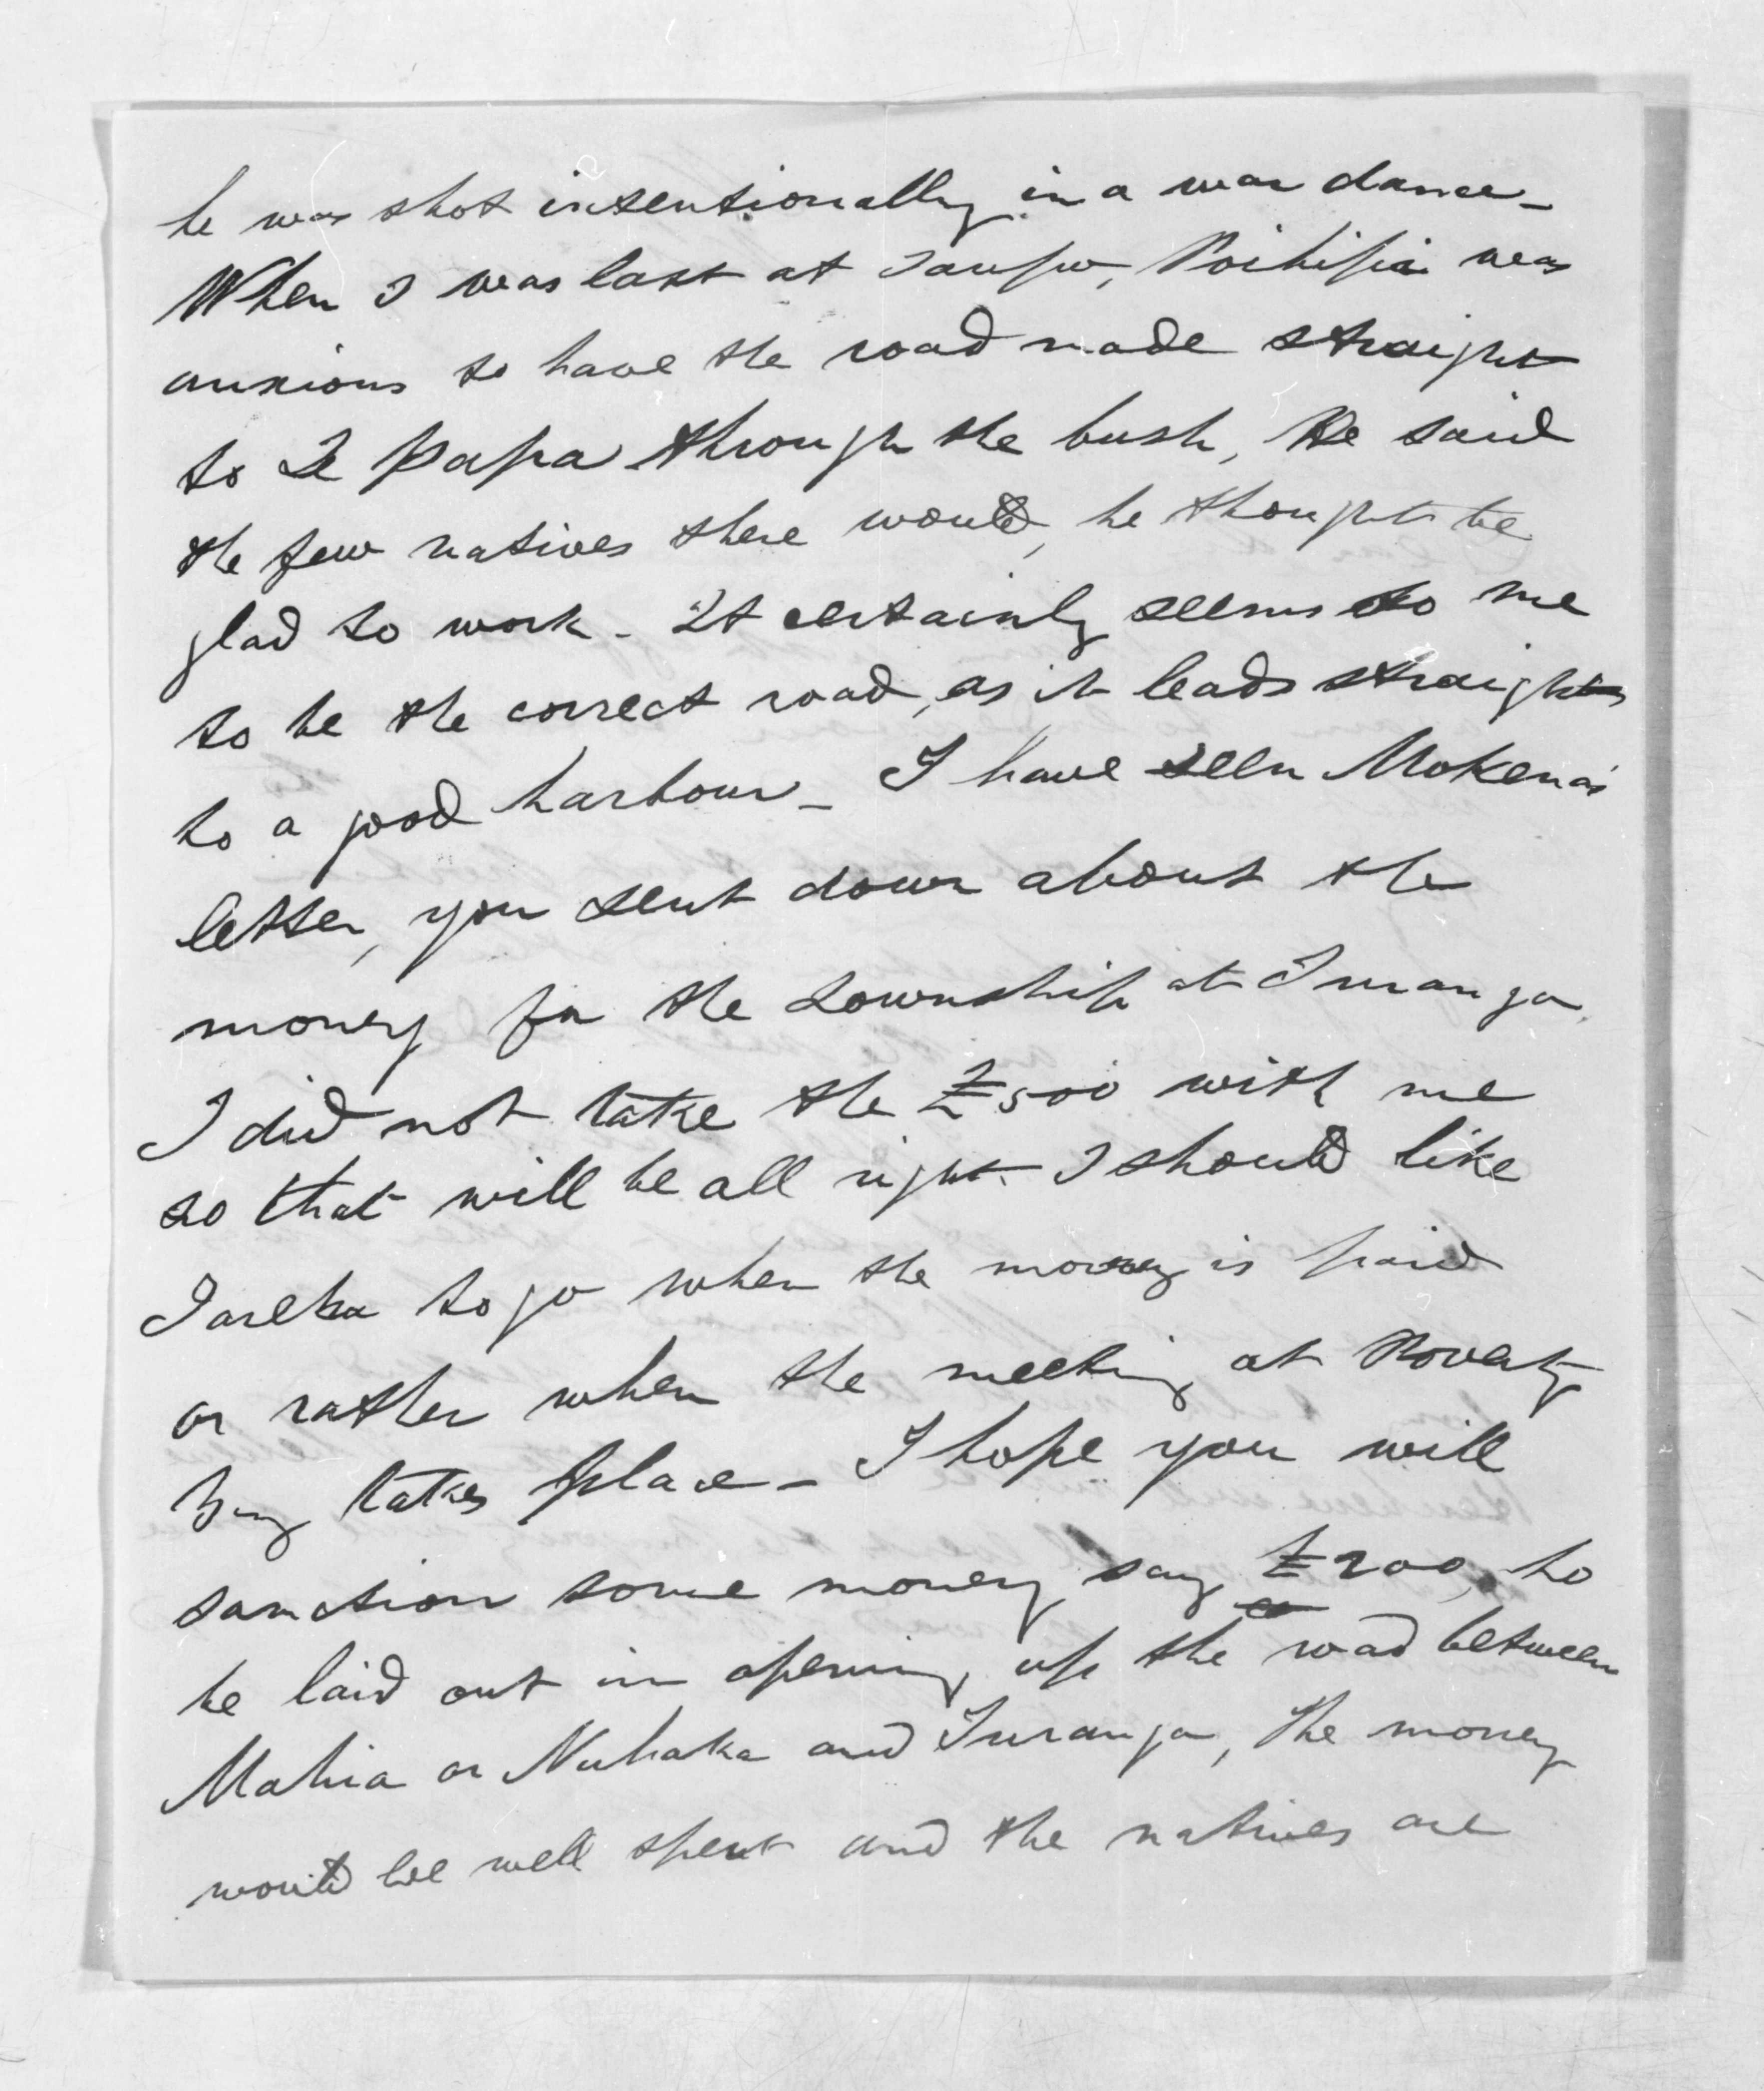 he was shot intentionally in a war dance_
When I was last at Taupo, Poihipi was
anxious to have the road made straight
to Te Papa through the bush, He said
the few natives there would, he thought be
glad to work _ It certainly seems to me
to be the correct road, as it leads straight
to a good harbour _ I have seen Mokena's
letter, you sent down about the
money for the township at Turanga,
I did not take the £500 with me
so that will be all right. I should like
Tareha to go when the money is paid
or rather when the meeting at Poverty
Bay takes place _ I hope you will
sanction some money say £200, to
be laid out in opening up the road between
Mahia or Nuhaka and Turanga, the money
would be well spent and the natives are